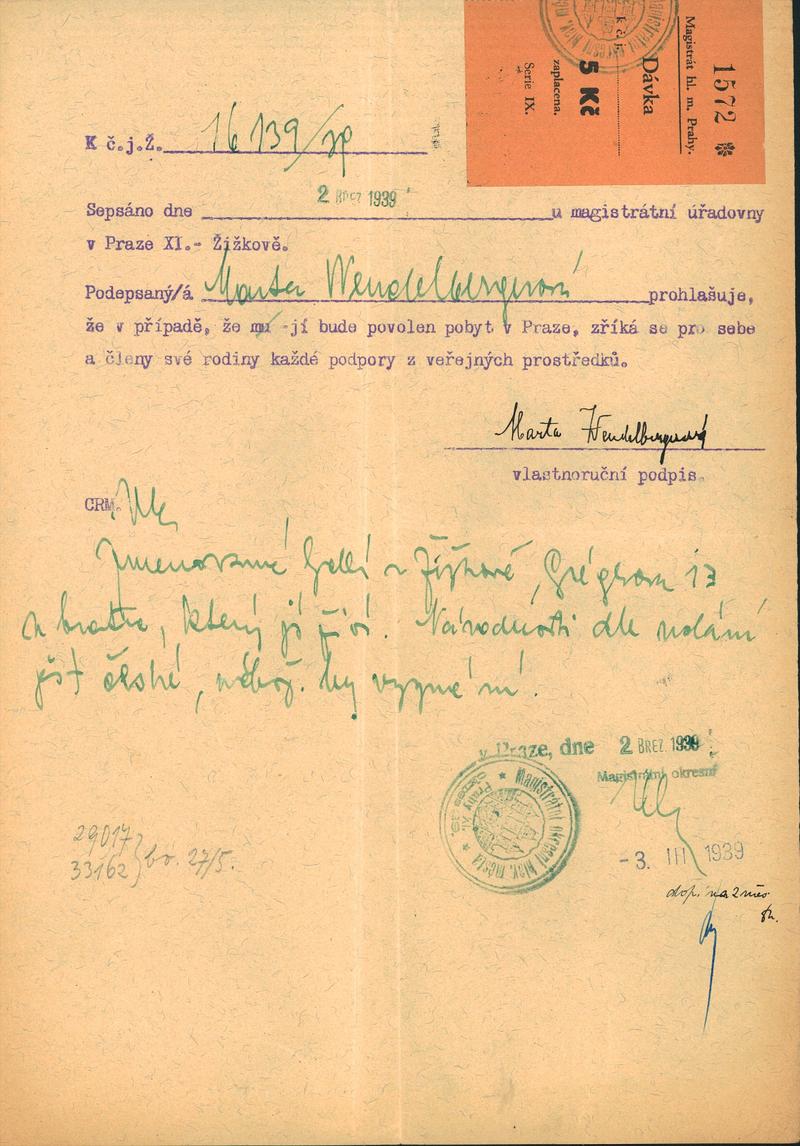 1572 ✻
Magistrát hl. m. Prahy.
Dávka
k č. j.
5 Kč
zaplacena.
Serie IX.
K č.j.Ž. 16139/
2 BŘEZ 1939
Sepsáno dne u magistrátní úřadovny
v Praze XI.- Žižkově.
Podepsaný/á Marta Wendelbergerová prohlašuje,
že v případě, že mu -jí bude povolen pobyt v Praze, zříká se pro sebe
a členy své rodiny každé podpory z veřejných prostředků.
Marta Wendelbergerová
vlastnoruční podpis.
CRM.
Jmenovaná bydlí v Žižkově, 13
u bratra, který jí živí. Národnosti dle udání
jest české, nábož. vyznání.
v Praze, dne 2 BŘEZ. 1939
Magistrátní okresní
Magistrátní okresní hlav. města Prahy XI.
-3. III 1939
29017
33162 } 27/5.
dop. na 2 měs.